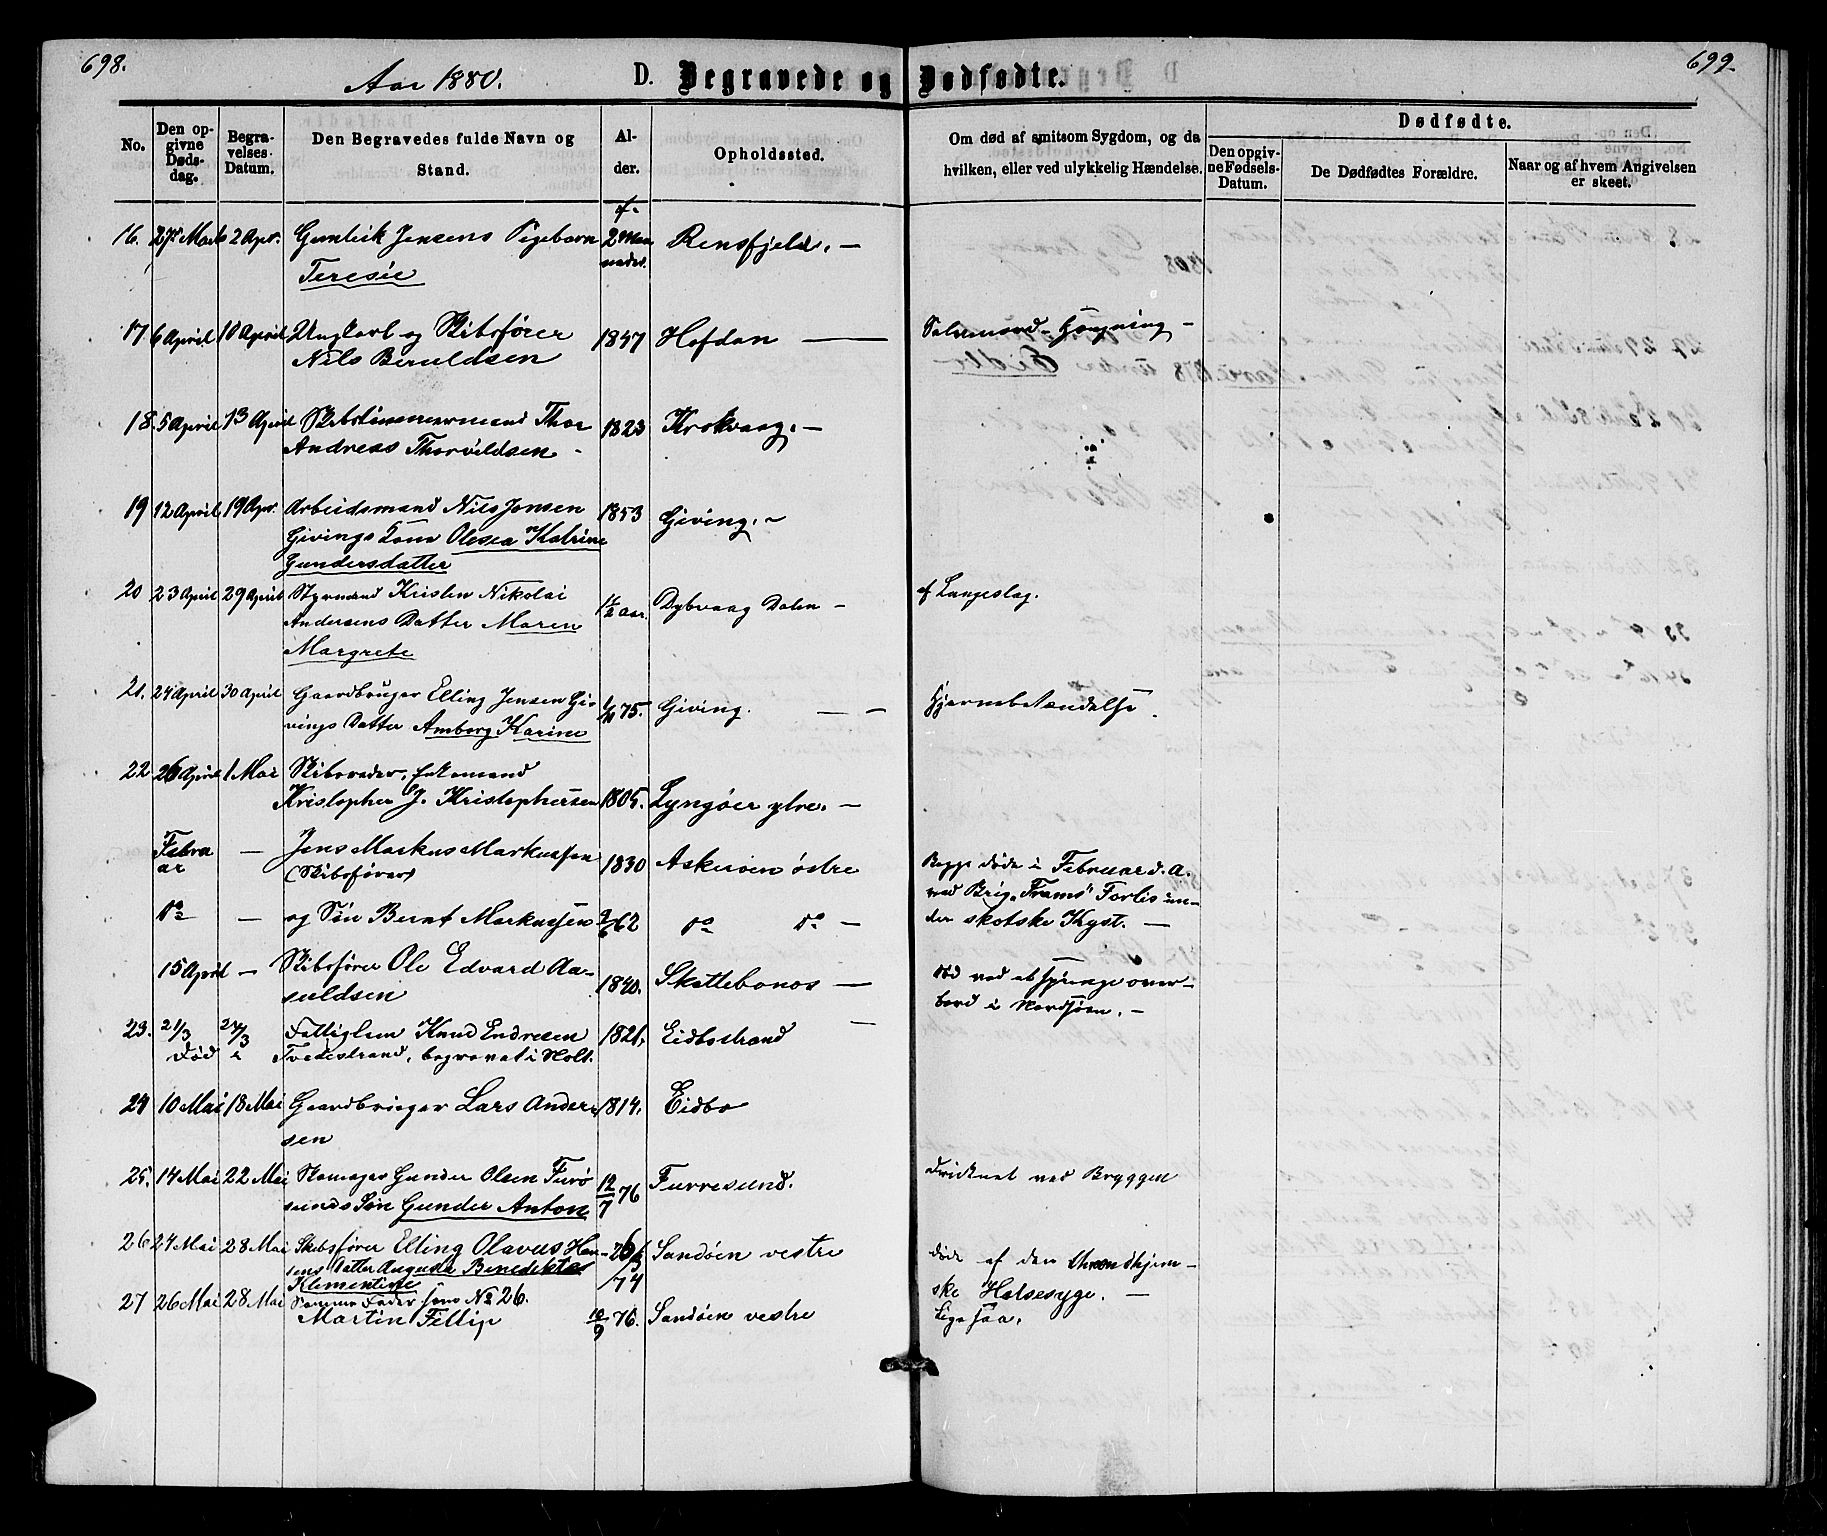 698.
699.
Aar 1880.
D. Begravede og Dødfødte.
No.
Den opgivne Dødsdag.
Begravelses Datum.
Den Begravedes fulde Navn og Stand.
Alder.
Opholdssted.
Om død af smitsom Sygdom, og da hvilken, eller ved ulykkelig Hændelse.
Dødfødte.
Den opgivne Fødsels-Datum.
De Dødfødtes Forældre.
Naar og af hvem Angivelsen er skeet.
16. 2 Apr. Gunleik Jensens Pigebarn 2 Maaneder. Rensfjeld. —
Teresie
17. 6 April 10 April Ungkarl og Skibsfører 1847 Hofdan — Selvmord Hængning —
Nils Beruldsen
18. 5 April 13 April Skibstømmermand Thor 1823 Krokvaag. —
Andreas Thorvildsen —
19 12 April 19 Apr. Arbeidsmand Nils Jensen 1853 Giving. —
Givings Kone Olesea Katrine
Gundersdatter
20 23 April 29 April Styrmand Kristen Nikolai 1½ aar. Dybvaag Dalen — af Langeslag.
Andersens Datter Maren
Margrete
21. 24 April 30 April Gaardbruger Elling Jensen Gi- 75. Giving. — — Hjernebetændelse.
vings Datter Amborg Karine
22 26 April 1 Mai Skibsreder, Enkemand
Kristopher J. Kristophersen 1805. Lyngøer ytre. —
Februar — Jens Markus Markussen 1830 Askerøen østre Begge døde i Februar d. A.
(Skibsfører) ved Brig „Frams" Forlis un-
do — og Søn Bernt Markussen 62 do do — der skotske Kyst. —
15 April — Skibsfører Ole Edvard Aa- 1840. Skottebonos — død ved at springe over-
suldsen bord i Nordsøen. —
23. 21/3 27/3 Fattiglem Knud Endresen 1821, Eidbostrand —
Død i Tvedestrand, begravet i Holt.
24 10 Mai 18 Mai Gaardbruger Lars Ander- 1814, Eidbo
sen
25. 14 Mai 22 Mai Skomager Gunder Olsen Furø 12/7 76 Furresund. druknet ved Bryggen
sunds Søn Gunder Anton
26 24 Mai 28 Mai Skibsfører Elling Olavus Han- 74 Sandøen vestre døde af den Throndhjem-
sens Datter Augusta Benedikta
Klementine ske Halsesyge. —
27 26 Mai 28 Mai Samme Fader som No 26. Ligesaa.
Martin Fellip 10/9 76. Sandøen vestre